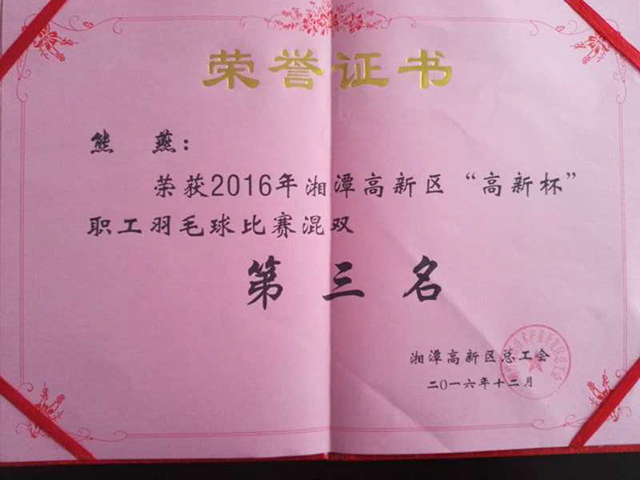 荣誉证书
熊 燕：
荣获2016年湘潭高新区“高新杯”
职工羽毛球比赛混双
第三名
湘潭高新区总工会
二〇一六年十二月